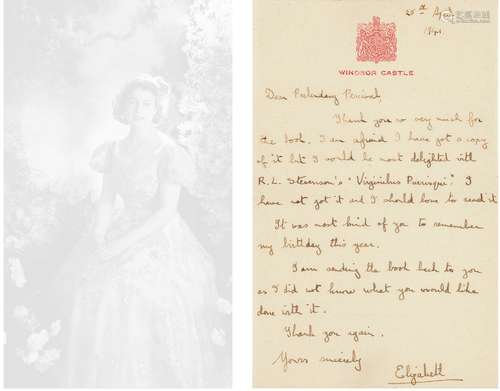 25th April
WINDSOR CASTLE
Dear Prebendary Percival,
Thank you so very much for
the book. I am afraid I have got a copy
of it but I would be most delighted with
R. L. Stevenson's "Virginibus Puerisque." I
have not got it and I should love to read it
It was most kind of you to remember
my birthday this year.
I am sending the book back to you
as I did not know what you would like
done with it.
Thank you again.
Yours sincerely
Elizabeth